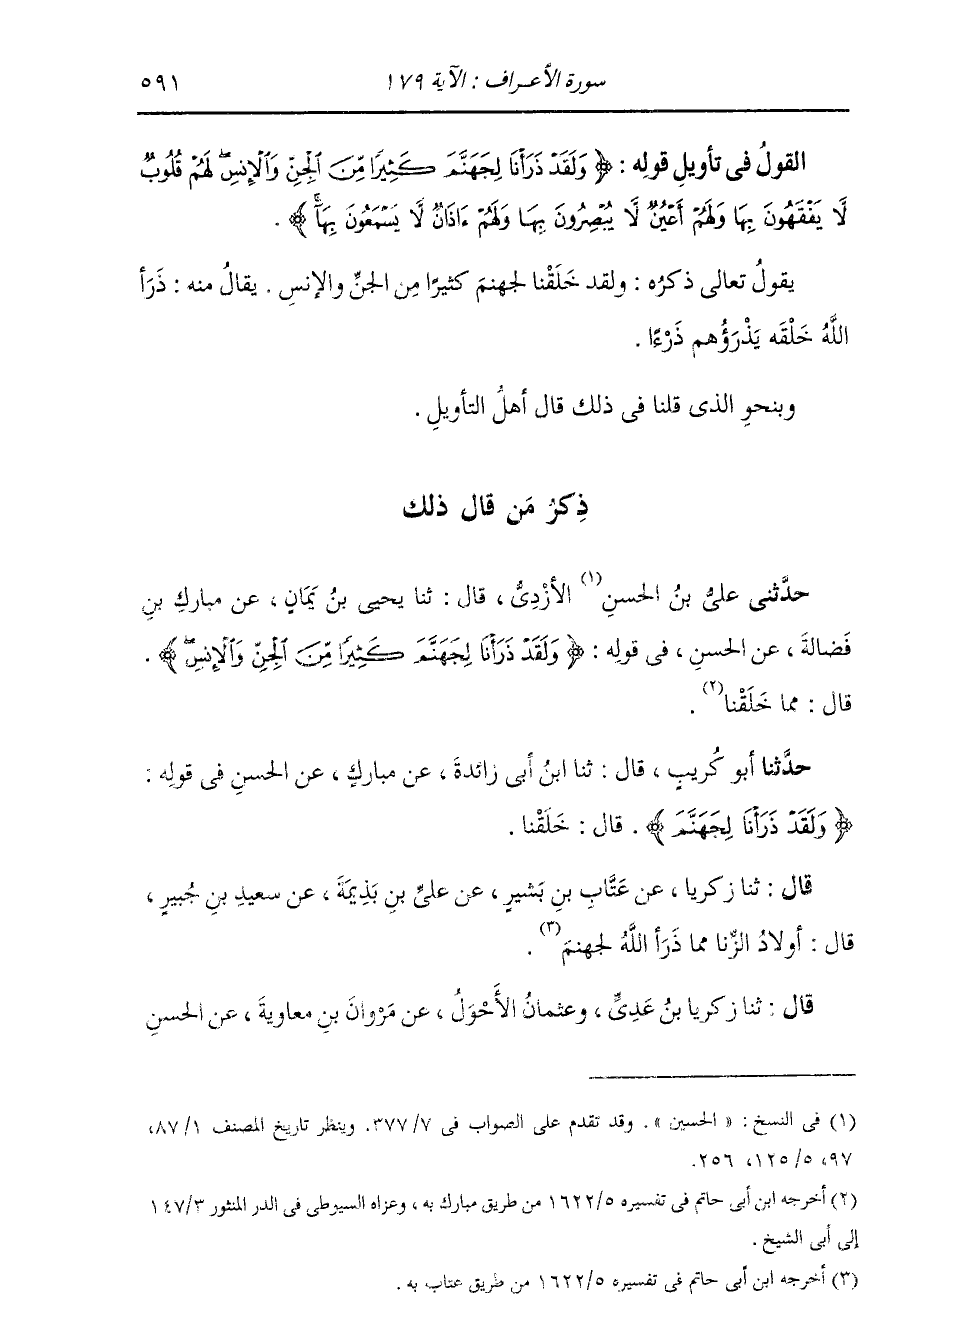 سورة الأعراف : الآية ١٧٩ ٥٩١
القولُ فى تأويلِ قولِه : ﴿ وَلَقَدْ ذَرَأْنَا لِجَهَنَّمَ كَثِيرًا مِّنَ ٱلْجِنِّ وَٱلْإِنسِۖ لَهُمْ قُلُوبٌ
لَّا يَفْقَهُونَ بِهَا وَلَهُمْ أَعْيُنٌ لَّا يُبْصِرُونَ بِهَا وَلَهُمْ ءَاذَانٌ لَّا يَسْمَعُونَ بِهَآۚ ﴾ .
يقولُ تعالى ذكرُه : ولقد خَلَقْنا لجهنمَ كثيرًا مِن الجنِّ والإنسِ . يقالُ منه : ذَرَأ
اللَّهُ خَلْقَه يَذْرَؤُهم ذَرْءًا .
وبنحوِ الذى قلنا فى ذلك قال أهلُ التأويلِ .
ذِكرُ مَن قال ذلك
حدَّثنى علىُّ بنُ الحسنِ(١) الأَزْدِىُّ ، قال : ثنا يحيى بنُ يَمَانٍ ، عن مباركِ بنِ
فَضالةَ ، عن الحسنِ ، فى قولِه : ﴿ وَلَقَدْ ذَرَأْنَا لِجَهَنَّمَ كَثِيرًا مِّنَ ٱلْجِنِّ وَٱلْإِنسِۖ ﴾ .
قال : مما خَلَقْنا(٢) .
حدَّثنا أبو كُريبٍ ، قال : ثنا ابنُ أبى زائدةَ ، عن مباركٍ ، عن الحسنِ فى قولِه :
﴿ وَلَقَدْ ذَرَأْنَا لِجَهَنَّمَ ﴾ . قال : خَلَقْنا .
قال : ثنا زكريا ، عن عَتَّابِ بنِ بَشيرٍ ، عن علىِّ بنِ بَذِيمَةَ ، عن سعيدِ بنِ جُبيرٍ ،
قال : أولادُ الزِّنا مما ذَرَأ اللَّهُ لجهنمَ(٣) .
قال : ثنا زكريا بنُ عَدِىٍّ ، وعثمانُ الأَحْوَلُ ، عن مَرْوانَ بنِ معاويةَ ، عن الحسنِ
(١) فى النسخ : « الحسين » . وقد تقدم على الصواب فى ٧/ ٣٧٧. وينظر تاريخ المصنف ١/ ٨٧،
٩٧، ٥/ ١٢٥، ٢٥٦.
(٢) أخرجه ابن أبى حاتم فى تفسيره ٥/ ١٦٢٢ من طريق مبارك به ، وعزاه السيوطى فى الدر المنثور ٣/ ١٤٧
إلى أبى الشيخ .
(٣) أخرجه ابن أبى حاتم فى تفسيره ٥/ ١٦٢٢ من طريق عتاب به .